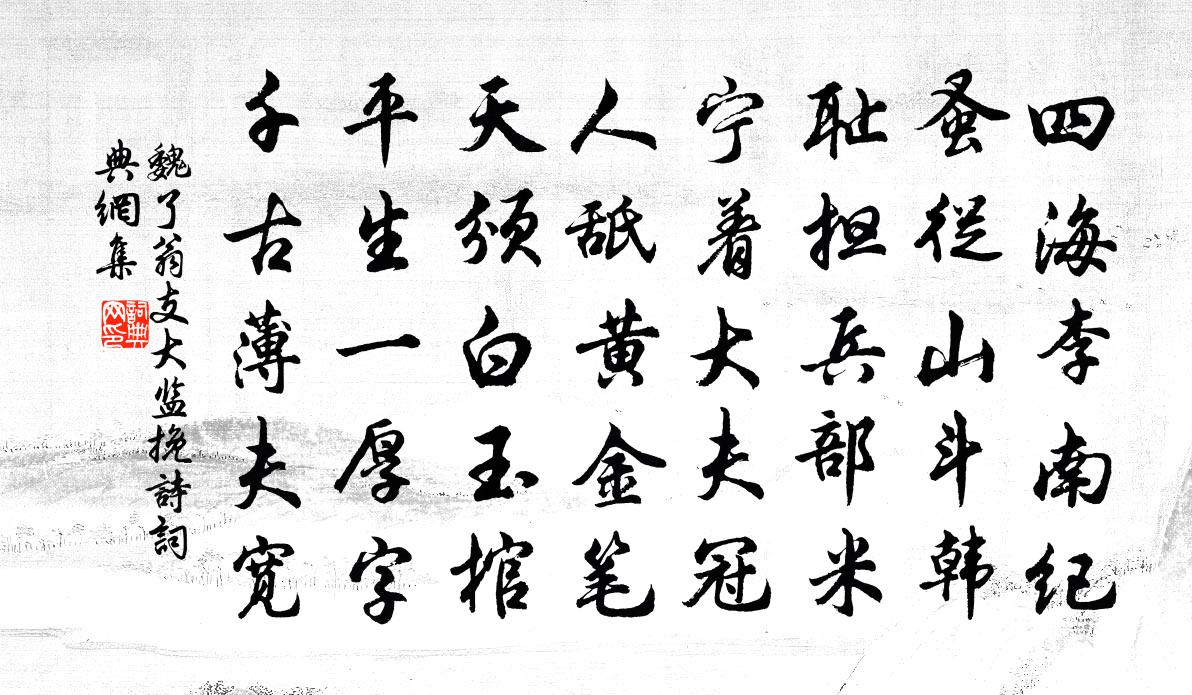 四海李南纪
蚤从山斗韩
耻担兵部米
宁着大夫冠
人舐黄金笔
天颁白玉棺
平生一厚字
千古薄夫宽
魏了翁支大监挽诗詞
典網集
詞典
网印